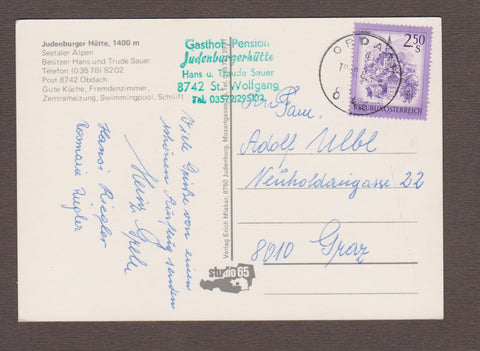 Judenburger Hütte, 1400 m
Seetaler Alpen
Besitzer Hans und Trude Sauer
Telefon (0 35 78) 8202
Post 8742 Obdach
Gute Küche, Fremdenzimmer,
Zentralheizung, Swimmingpool, Schilift
Gasthof-Pension
Judenburgerhütte
Hans u. Trude Sauer
8742 St. Wolfgang
Tel. 03578/
OBDACH
2.50
S
REPUBLIK ÖSTERREICH
Viele Grüße von einem
schönen Ausflug senden
Hansi Riegler
Rosmarie Riegler
Verlag Erich Mlakar, 8750 Judenburg, Mozartgasse
studio 65
An Fam.
Adolf Ulbl
Neuholdaugasse 22
8010 Graz